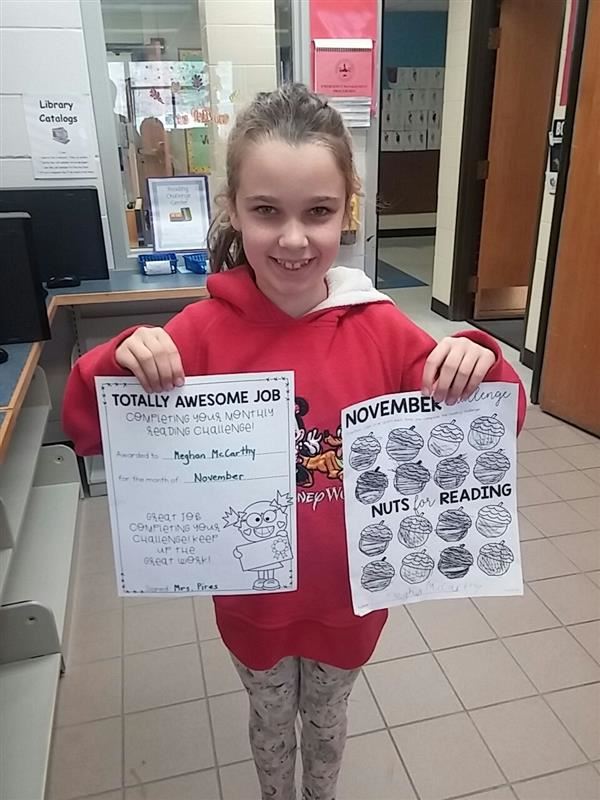 Library
Catalogs
Reading
Challenge
Center
TOTALLY AWESOME JOB
COMPLETING YOUR MONTHLY
READING CHALLENGE!
Awarded to Meghan McCarthy
for the month of November
GREAT JOB
COMPLETING YOUR
CHALLENGE! KEEP
UP THE
GREAT WORK!
Signed Mrs. Pires
NOVEMBER Challenge
NUTS for READING
Meghan McCarthy